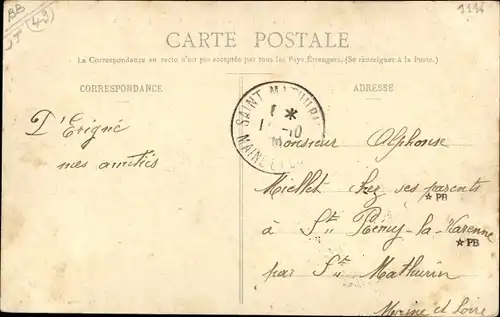 BB
(49)
CARTE POSTALE
La Correspondance au recto n'est pas acceptée par tous les Pays Étrangers. (Se renseigner à la Poste.)
CORRESPONDANCE
ADRESSE
SAINT MATHURIN
MAINE ET
D'Erigné
mes amitiés
Monsieur Alphonse
Miellet chez ses parents
☆PB
à St Rémy-la-Varenne
☆PB
par St Mathurin
Maine et Loire